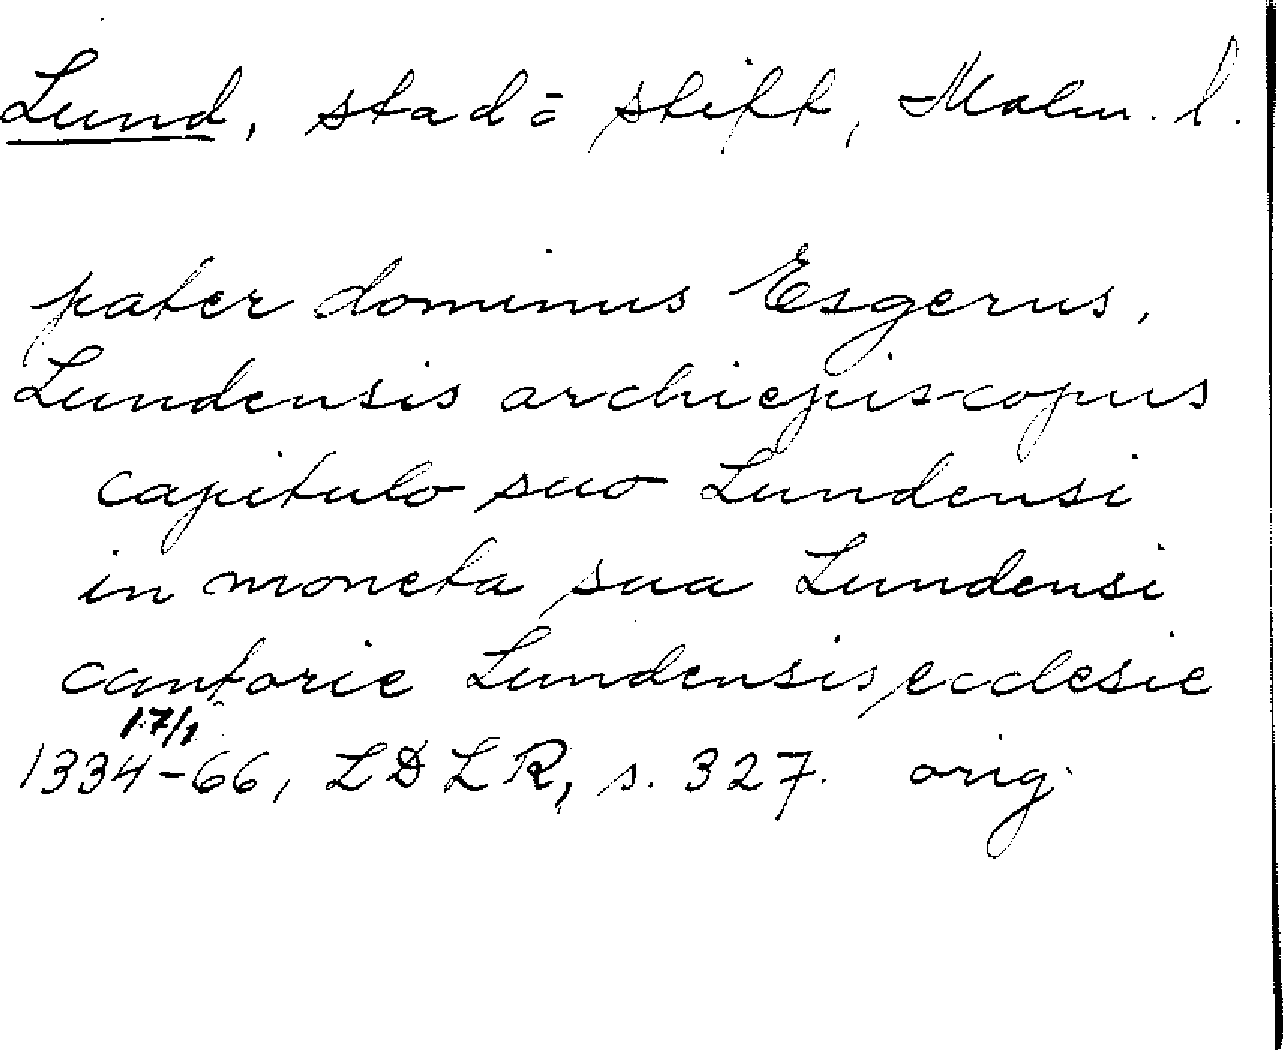 Lund, stad = stift, Malm. l.
pater dominus Esgerus,
Lundensis archiepiscopus
capitulo suo Lundensi
in moneta sua Lundensi
cantorie Lundensis ecclesie
17/1
1334-66, LDLR, s. 327. orig.